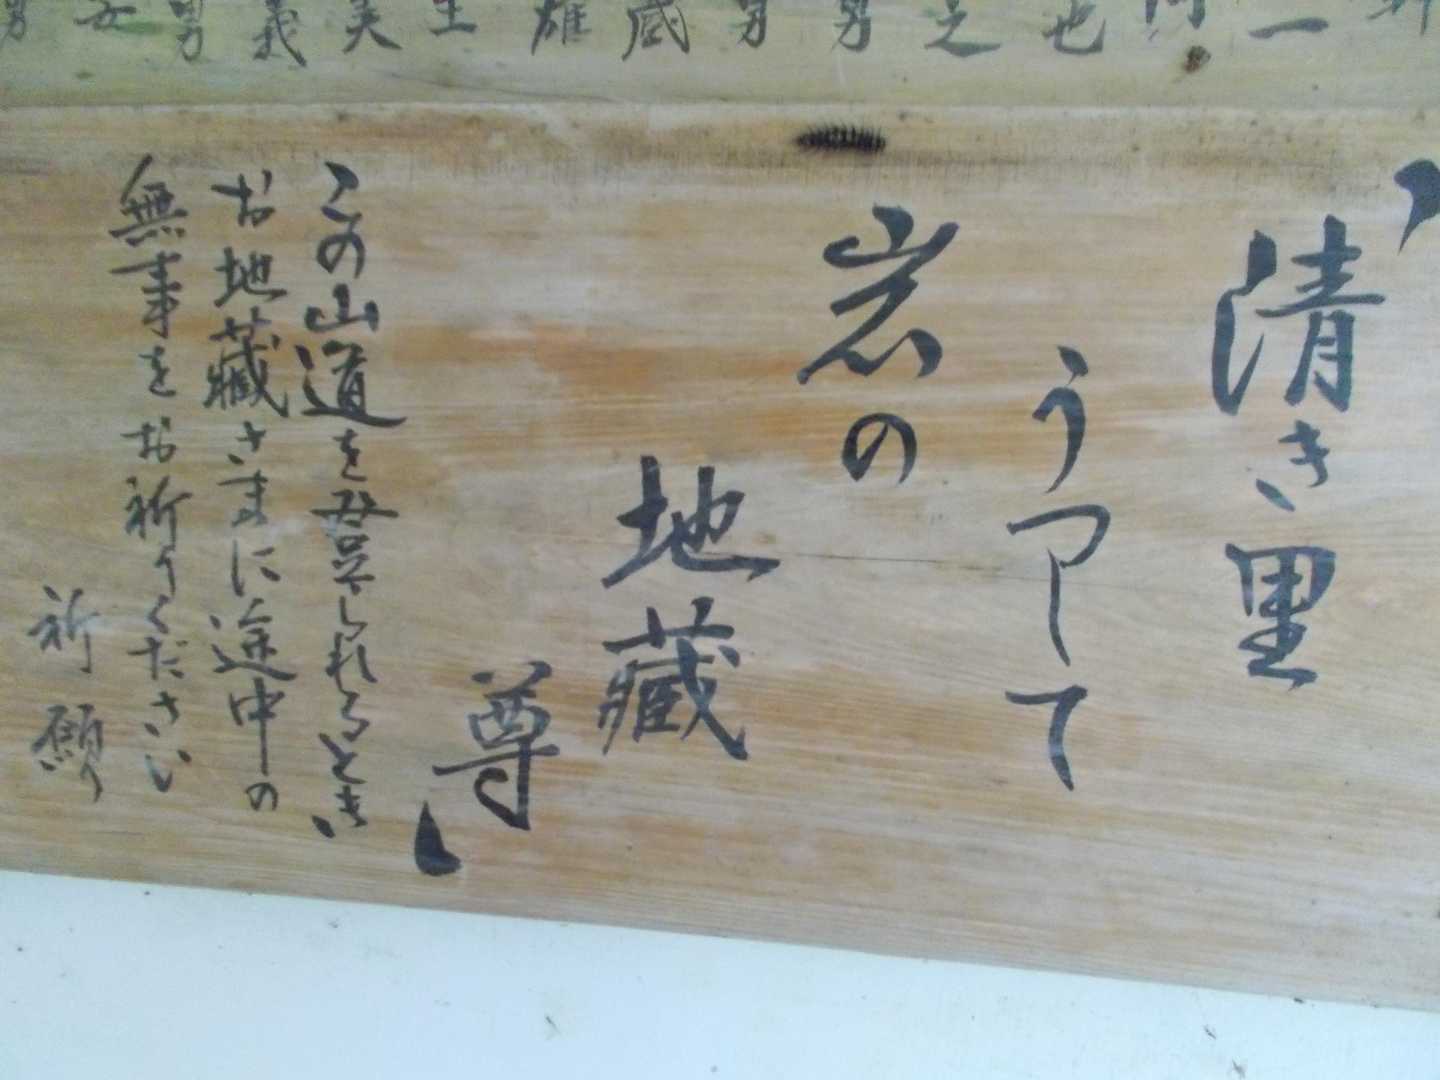 清き里
うつして
岩の
地蔵
尊
この山道を登られるとき
お地蔵さまに途中の
無事をお祈りください
祈願
男 女 男 義 美 生 雄 蔵 男 男 之 也 一